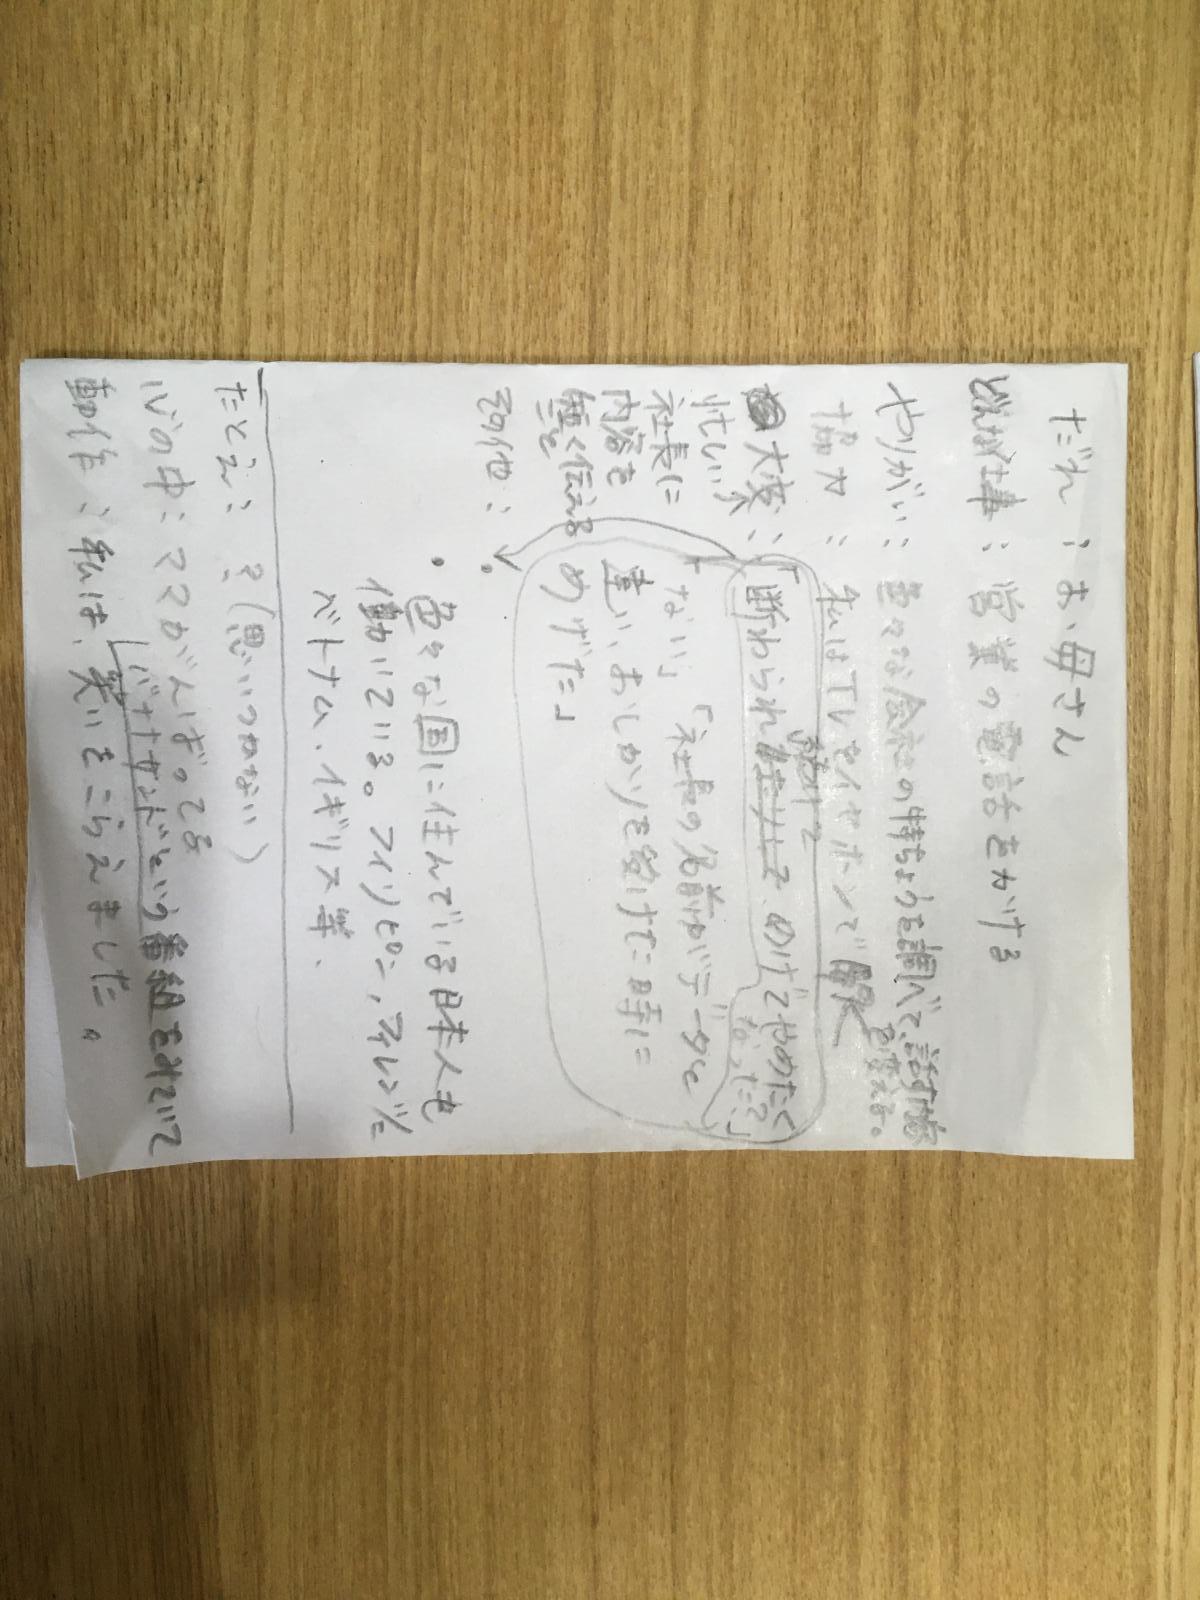 だれ：お母さん
どんな仕事：営業の電話をかける
やりがい：色々な会社の特ちょうを調べて、話す内容を変える。
協力：私はTVをイヤホンで
大変：「断われ続けて、めげてやめたくなった？」
忙しい社長に内容を無く伝える
ない」「社長の名前がデータと
違い、おしかりを受けた時に
めげた」
その他：
・色々な国に住んでいる日本人も
働いている。フィリピン、
ベトナム、イギリス等、
たとえ：ミ（思いつかない）
心の中：ママがんばってる
バナナサンドという番組をみていて
動作：私は、笑いをこらえました。